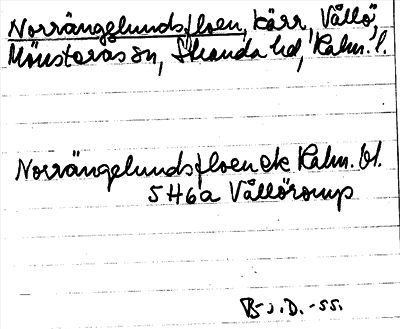 Norrängelundsfloen, kärr, Vållö,
Mönsterås sn, Stranda hd, Kalm. l.
Norrängelundsfloen ek Kalm. bl.
5 H 6 a Vållöromp
B. J. D. -55.